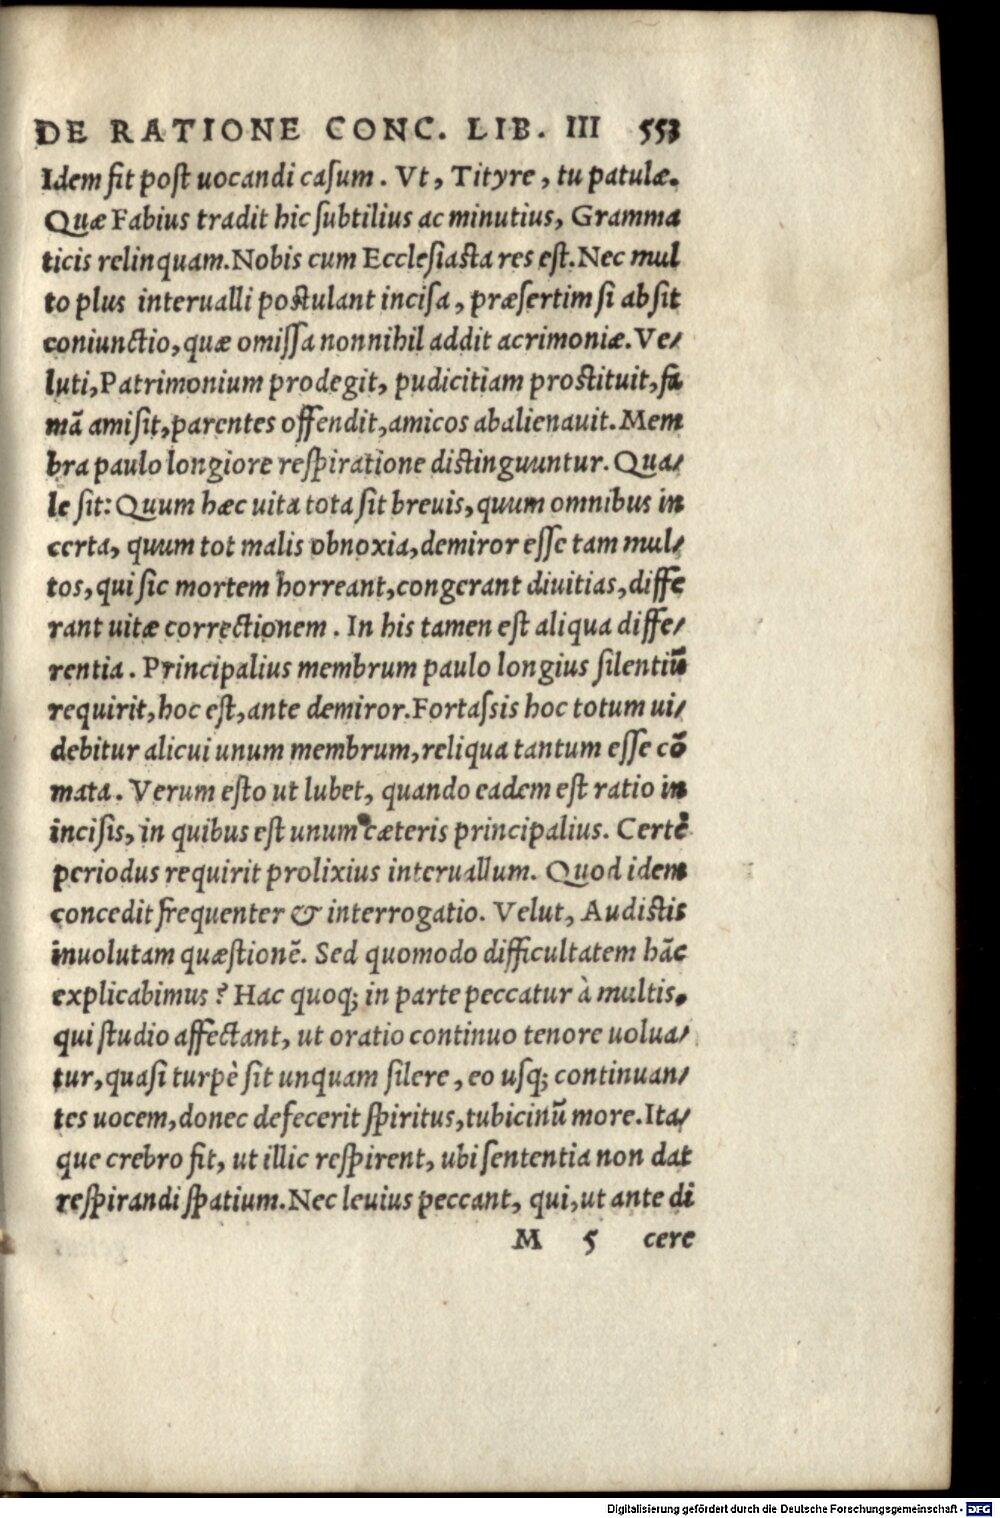 DE RATIONE CONC. LIB. III 553
Idem fit post uocandi casum. Vt, Tityre, tu patulæ.
Quæ Fabius tradit hic subtilius ac minutius, Gramma
ticis relinquam. Nobis cum Ecclesiasta res est. Nec mul
to plus interualli postulant incisa, præsertim si absit
coniunctio, quæ omissa nonnihil addit acrimoniæ. Ve/
luti, Patrimonium prodegit, pudicitiam prostituit, fa
mā amisit, parentes offendit, amicos abalienauit. Mem
bra paulo longiore respiratione distinguuntur. Qua/
le sit: Quum hæc uita tota sit breuis, quum omnibus in
certa, quum tot malis obnoxia, demiror esse tam mul/
tos, qui sic mortem horreant, congerant diuitias, diffe
rant uitæ correctionem. In his tamen est aliqua diffe/
rentia. Principalius membrum paulo longius silentiū
requirit, hoc est, ante demiror. Fortassis hoc totum ui/
debitur alicui unum membrum, reliqua tantum esse cō
mata. Verum esto ut lubet, quando eadem est ratio in
incisis, in quibus est unum cæteris principalius. Certè
periodus requirit prolixius interuallum. Quod idem
concedit frequenter & interrogatio. Velut, Audistis
inuolutam quæstionē. Sed quomodo difficultatem hāc
explicabimus? Hac quoq; in parte peccatur à multis.
qui studio affectant, ut oratio continuo tenore uolua/
tur, quasi turpè sit unquam silere, eo usq; continuan/
tes uocem, donec defecerit spiritus, tubicinū more. Ita/
que crebro fit, ut illic respirent, ubi sententia non dat
respirandi spatium. Nec leuius peccant, qui, ut ante di
M 5 cere
Digitalisierung gefördert durch die Deutsche Forschungsgemeinschaft - DFG